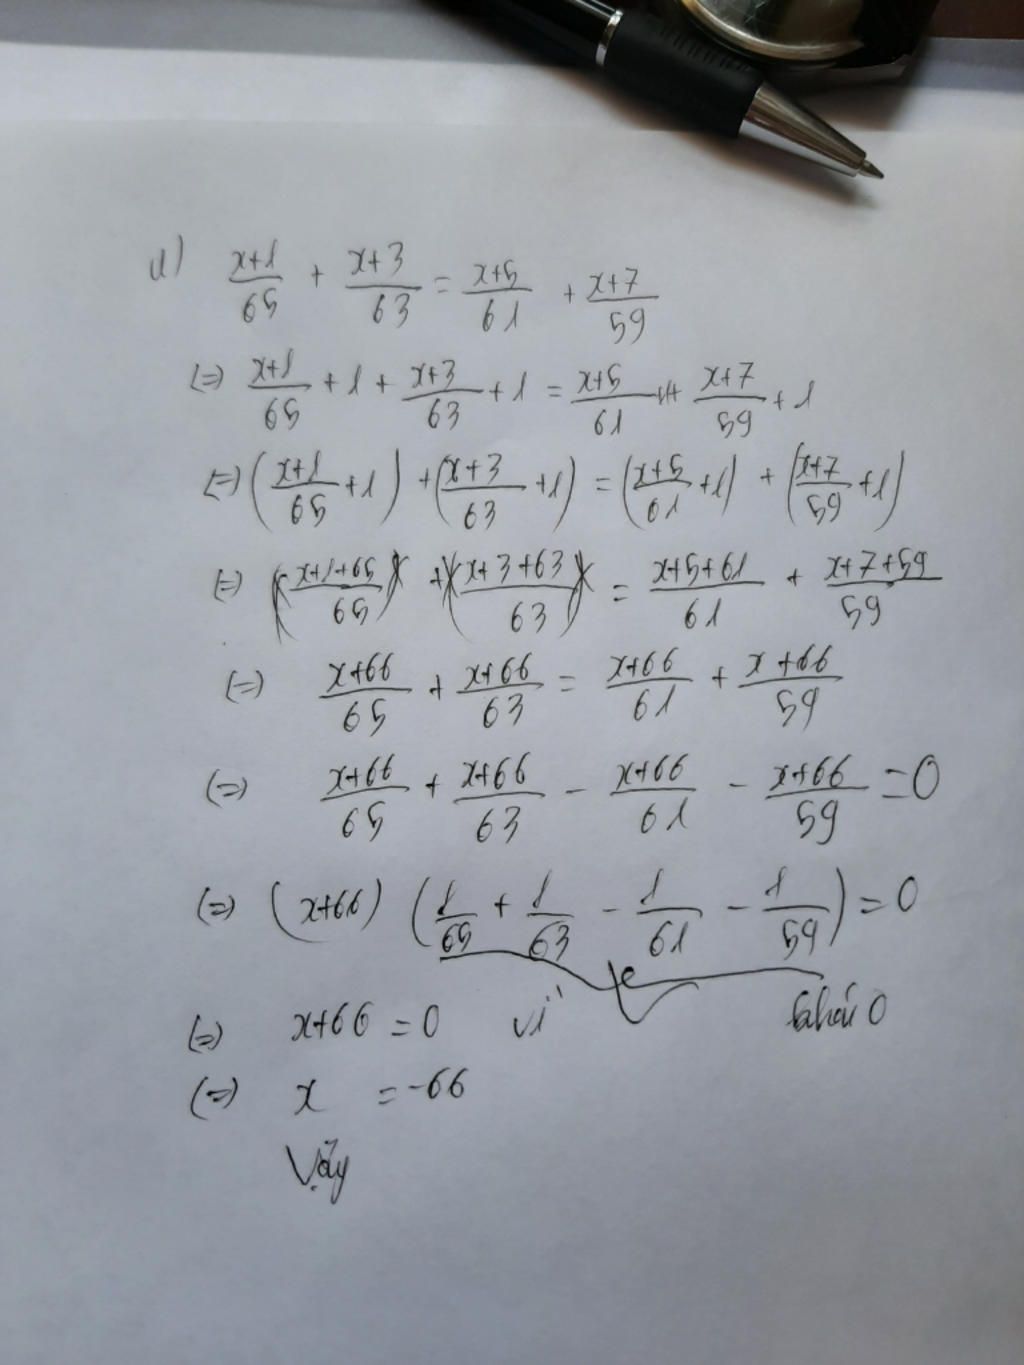 a) \frac{x+1}{65} + \frac{x+3}{63} = \frac{x+5}{61} + \frac{x+7}{59}
(=) \frac{x+1}{65} + 1 + \frac{x+3}{63} + 1 = \frac{x+5}{61} + 1 + \frac{x+7}{59} + 1
(=) (\frac{x+1}{65} + 1) + (\frac{x+3}{63} + 1) = (\frac{x+5}{61} + 1) + (\frac{x+7}{59} + 1)
(=) \frac{x+1+65}{65} + \frac{x+3+63}{63} = \frac{x+5+61}{61} + \frac{x+7+59}{59}
(=) \frac{x+66}{65} + \frac{x+66}{63} = \frac{x+66}{61} + \frac{x+66}{59}
(=) \frac{x+66}{65} + \frac{x+66}{63} - \frac{x+66}{61} - \frac{x+66}{59} = 0
(=) (x+66) (\frac{1}{65} + \frac{1}{63} - \frac{1}{61} - \frac{1}{59}) = 0
(=) x+66 = 0 vì khác 0
(=) x = -66
Vậy